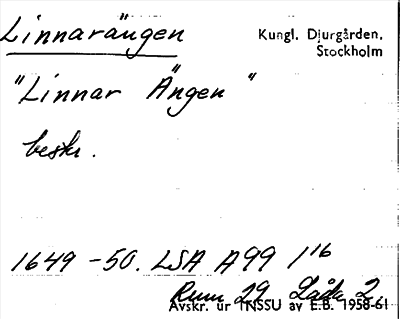 Linnarängen
Kungl. Djurgården,
Stockholm
"Linnar Ängen"
beskr.
1649-50. LSA A99 1 16
Rum 29 Låda 2
Avskr. ur TNSSU av E.B. 1958-61